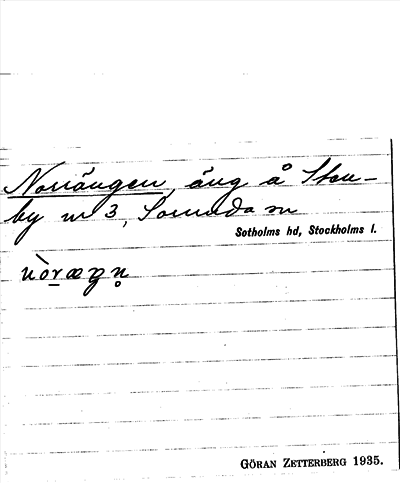 Norrängen, äng å Sten-
by nr 3, Sorunda sn
Sotholms hd, Stockholms l.
GÖRAN ZETTERBERG 1935.